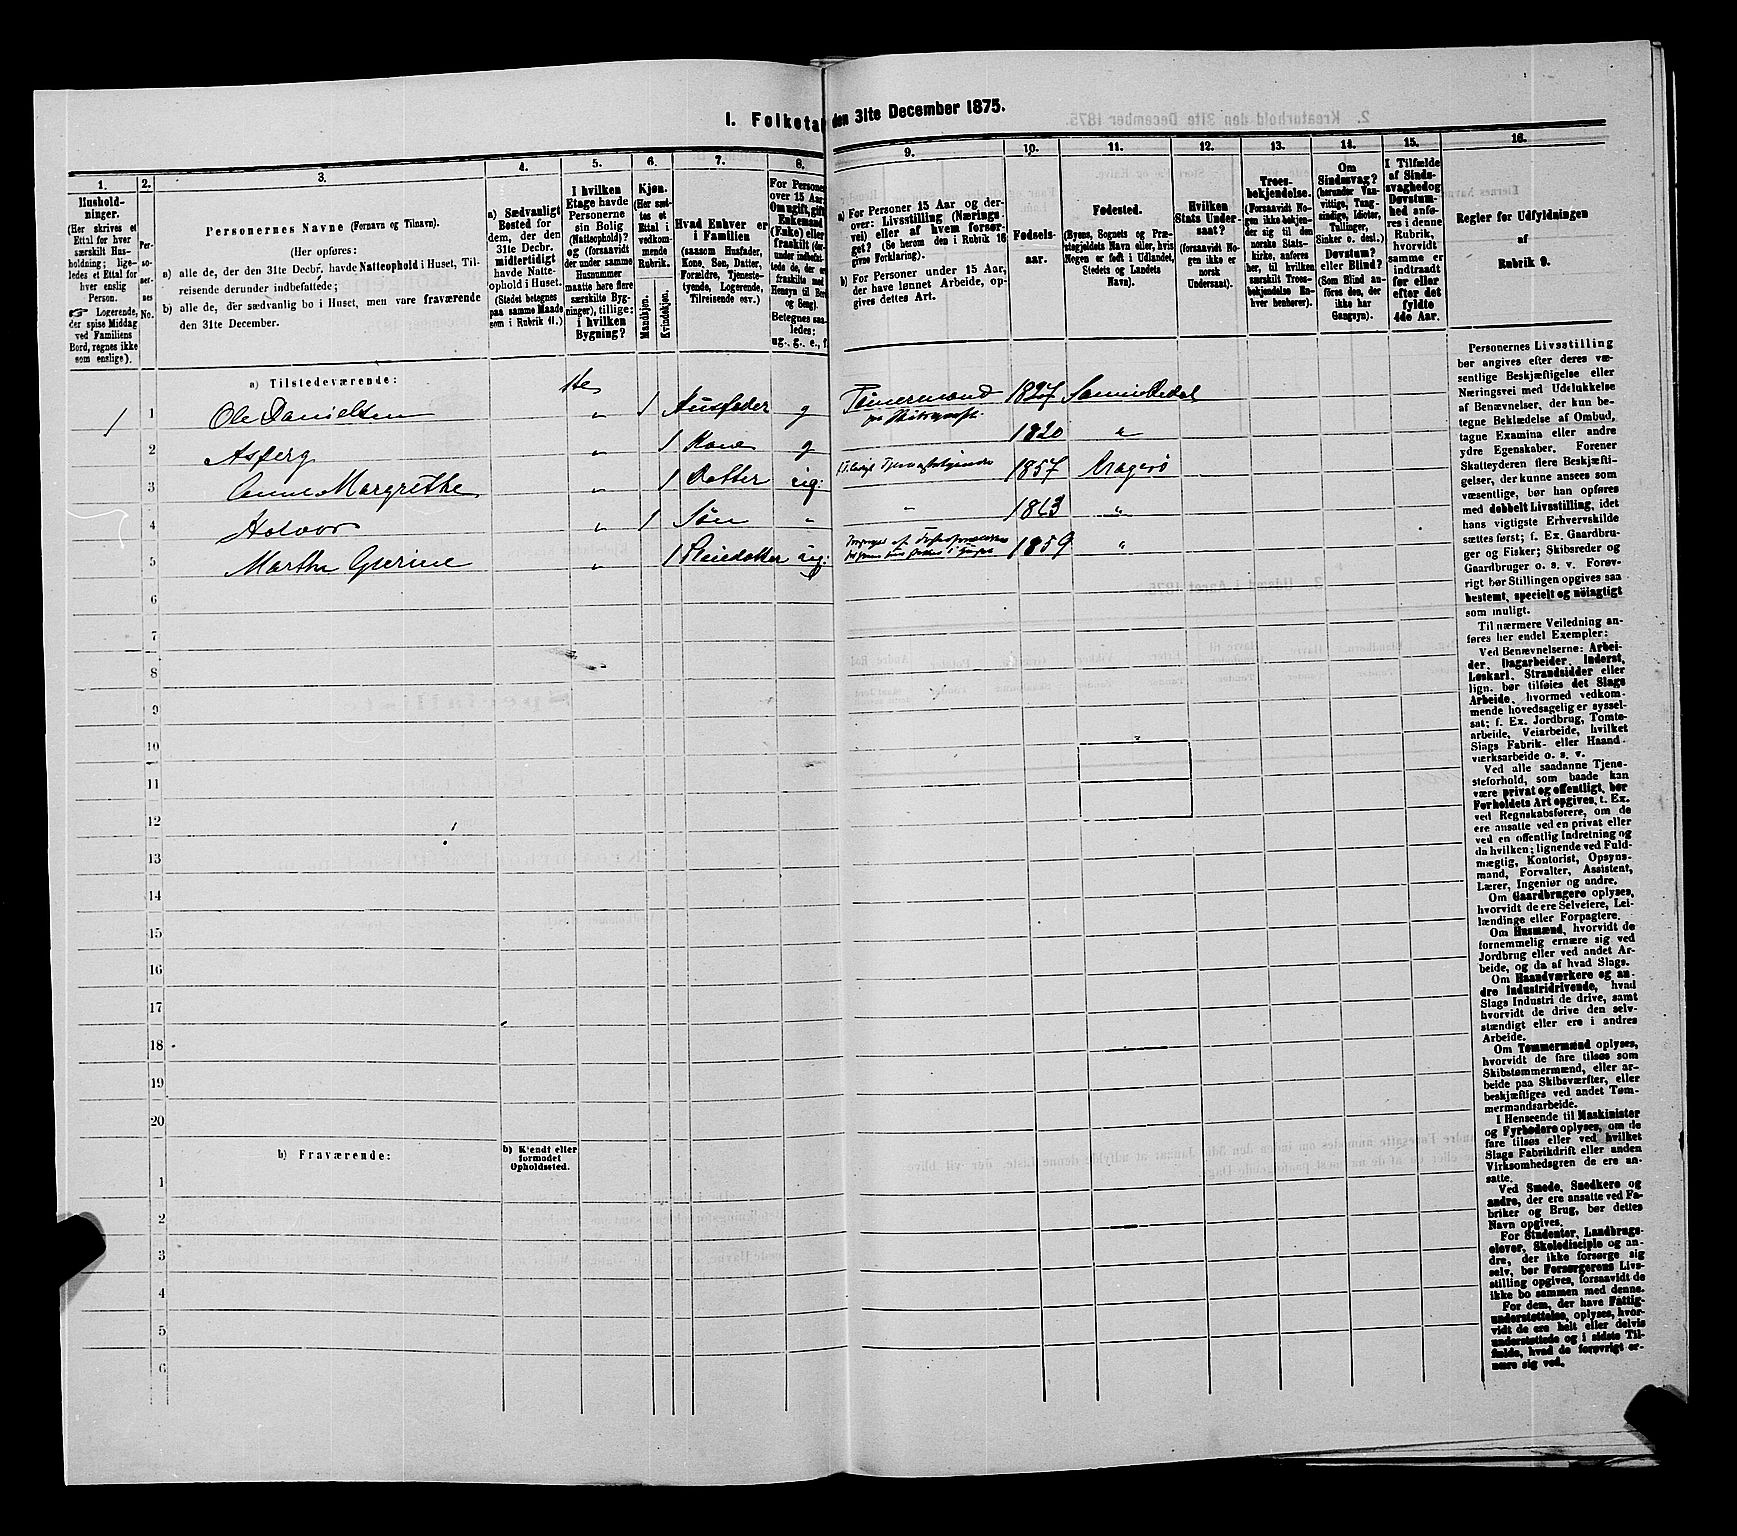 I. Folketal den 31te December 1875.
1.
2.
3.
4.
5.
6.
7.
8.
9.
10.
11.
12.
13.
14.
15.
16.
Husholdninger.
(Her skrives et
Ettal for hver
særskilt Husholdning; ligeledes
et Ettal for
hver enslig
Person.
Logerende,
der spise Middag
ved Familiens
Bord, regnes ikke
som enslige).
Personernes
No.
Personernes Navne (Fornavn og Tilnavn).
(Her opføres:
a) alle de, der den 31te Decbr. havde Natteophold i Huset, Tilreisende derunder indbefattede;
b) alle de, der sædvanlig bo i Huset, men vare fraværende
den 31te December.
a) Sædvanligt
Bosted for
dem, der den
31te Decbr.
midlertidigt
havde Natteophold i Huset.
(Stedet betegnes
paa samme Maade
som i Rubrik 11.)
I hvilken
Etage havde
Personerne
sin Bolig
(Natteophold)?
og (forsaavidt
der under samme
Husnummer
maatte høre flere
særskilte Bygninger), tillige:
i hvilken
Bygning?
Kjøn.
(Her sættes et
Ettal i
vedkommende
Rubrik.
Mandkjøn.
Kvindekjøn.
Hvad Enhver er
i Familien
(saasom Husfader,
Kone, Søn, Datter,
Forældre, Tjenestetyende, Logerende,
Tilreisende osv.)
For Personer
over 15 Aar:
Om ugift, gift,
Enkemand
(Enke) eller
fraskilt
Betegnes saaledes:
ug., g., e., f.
a) For Personer 15 Aar og derover: Livsstilling (Næringsvei) eller af hvem forsørget? (Se herom den i Rubrik 16
givne Forklaring).
b) For Personer under 15 Aar,
der have lønnet Arbeide, opgives dettes Art.
Fødselsaar.
Fødested.
(Byens, Sognets og Præstegjeldets Navn eller, hvis
Nogen er født i Udlandet,
Stedets og Landets
Navn).
Hvilken
Stats Undersaat?
(forsaavidt Nogen ikke er
norsk
Undersaat).
Troesbekjendelse.
(Forsaavidt Nogen ikke bekjender sig til den
norske Statskirke, anføres
her, til hvilken
særskilt Troesbekjendelse Enhver henhører).
Om
Sindssvag?
(herunder Vanvittige, Tungsindige, Idioter,
Tullinger,
Sinker o. desl.)
Døvstum?
eller Blind?
(Som Blind anføres den, der
ikke har
Gangsyn).
I Tilfælde
af Sindssvaghed og
Døvstumhed anføres i denne
Rubrik,
hvorvidt
samme er
indtraadt
før eller
efter det
fyldte
4de Aar.
Regler for Udfyldningen
af
Rubrik 9.
a) Tilstedeværende:
1te
1 1 Ole Danielsen „ 1 Husfader g Tømermand 1827 Sannikedal
2 Asberg „ 1 Kone g 1820 „
3 Anne Margrethe „ 1 Datter ug: 1857 Kragerø
4 Halvor „ 1 Søn „ „ 1863 „
5 Marthe Gurine „ 1 Pleiedatter ug: 1859 „
6
7
8
9
10
11
12
13
14
15
16
17
18
19
20
b) Fraværende:
b) Kjendt eller
formodet
Opholdssted.
1
2
3
4
5
6
Personernes Livsstilling
bør angives efter deres væsentlige Beskjæftigelse eller
Næringsvei med Udelukkelse
af Benævnelser, der kun betegne Beklædelse af Ombud,
tagne Examina eller andre
ydre Egenskaber. Forener
Skatteyderen flere Beskjæftigelser, der kunne ansees som
væsentlige, bør han opføres
med dobbelt Livsstilling, idet
hans vigtigste Erhvervskilde
sættes først; f. Ex. Gaardbruger og Fisker; Skibsreder og
Gaardbruger o. s. v. Forøvrigt bør Stillingen opgives saa
bestemt, specielt og nöiagtigt
som muligt.
Til nærmere Veiledning anføres her endel Exempler:
Ved Benævnelserne: Arbeider, Dagarbeider, Inderst,
Løskarl, Strandsidder eller
lign. bør tilføies det Slags
Arbeide, hvormed vedkommende hovedsagelig er sysselsat; f. Ex. Jordbrug, Tomtearbeide, Veiarbeide, hvilket
Slags Fabrik- eller Haandværksarbeide o. s. v.
Ved alle saadanne Tjenesteforhold, som baade kan
være privat og offentligt, bør
Forholdets Art opgives, t. Ex.
ved Regnskabsførere, om de
ere ansatte ved en privat eller
ved en offentlig Indretning og
da hvilken; lignende ved Fuldmægtig, Kontorist, Opsynsmand, Forvalter, Assistent,
Lærer, Ingeniør og andre.
Om Gaardbrugere oplyses,
hvorvidt de ere Selveiere, Leilændinge eller Forpagtere.
Om Husmænd, hvorvidt de
fornemmelig ernære sig ved
Jordbrug eller ved andet Arbeide, og da af hvad Slags.
Om Haandværkere og andre Industridrivende, hvad
Slags Industri de drive, samt
hvorvidt de drive den selvstændigt eller ere i andres
Arbeide.
Om Tømmermænd oplyses,
hvorvidt de fare tilsøs som
Skibstømmermænd, eller arbeide paa Skibsværfter, eller
beskjæftiges ved andet Tømmermandsarbeide.
I Henseende til Maskinister
og Fyrbødere oplyses, om de
fare tilsøs eller ved hvilket
Slags Fabrikdrift eller anden
Virksomhedsgren de ere ansatte.
Ved Smede, Snedkere og
andre, der ere ansatte ved Fabriker og Brug, bør dettes
Navn opgives.
For Studenter, Landbrugselever, Skoledisciple og andre, der ikke forsørge sig
selv, bør Forsørgerens Livsstilling opgives, forsaavidt de
ikke bo sammen med denne.
For dem, der have Fattigunderstøttelse, oplyses, hvorvidt de ere helt eller delvis
understøttede og i sidste Tilfælde, hvad de forøvrigt ernære sig ved.